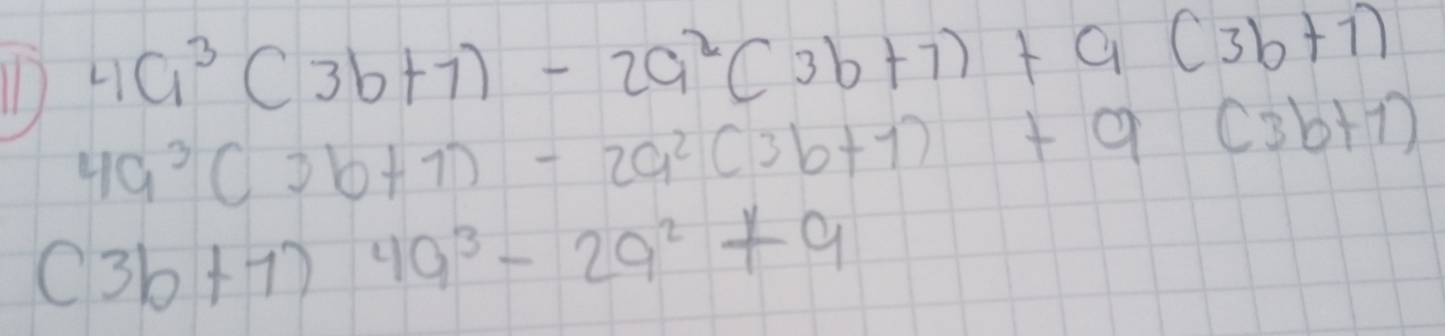 11) 4a³(3b+1) - 2a²(3b+1) + a (3b+1)
4a³(3b+1) - 2a²(3b+1) + a (3b+1)
(3b+1) 4a³ - 2a² + a